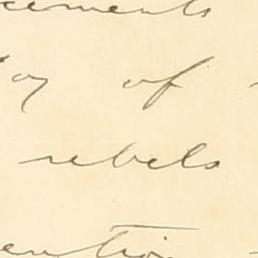 cements
of
rebels
ention